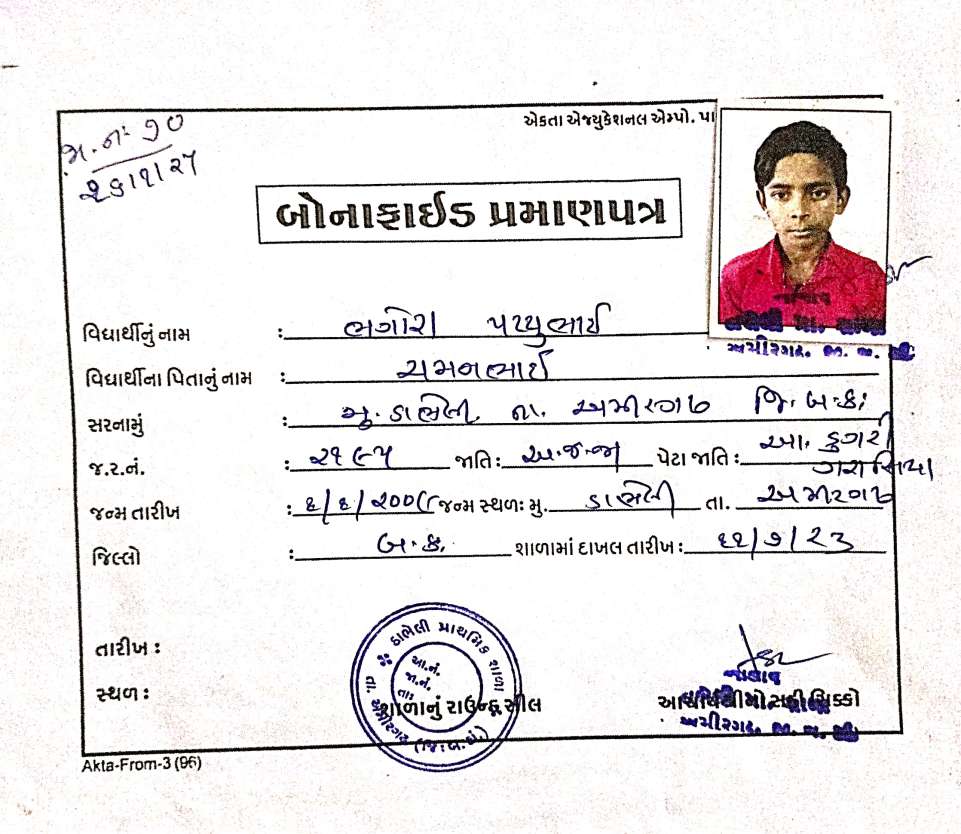 એકતા એજ્યુકેશનલ એમ્પો. પા
મ.નં: ૭૦
બોનાફાઈડ પ્રમાણપત્ર
વિદ્યાર્થીનું નામ : ભગોરા પપ્પુભાઈ
વિદ્યાર્થીના પિતાનું નામ : ચમનભાઈ
સરનામું : મુ. ડાભેલી તા. અમીરગઢ જિ. બ.કાં
જ.ર.નં. : ૨૧૯૫ જાતિ : અ.જ.જા પેટા જાતિ : આ. ડુંગરી ગરાસિયા
જન્મ તારીખ : ૬/૬/૨૦૦૮ જન્મ સ્થળ: મુ. ડાભેલી તા. અમીરગઢ
જિલ્લો : બ.કાં. શાળામાં દાખલ તારીખ : /૭/૨૩
તારીખ :
સ્થળ :
ડાભેલી પ્રાથમિક શાળા
તા. અમીરગઢ (જિ:બ.કાં.)
શાળાનું રાઉન્ડ સીલ
આચાર્યશ્રીની સહી સિક્કો
અમીરગઢ. જી. બ. કાં
Akta-From-3 (96)